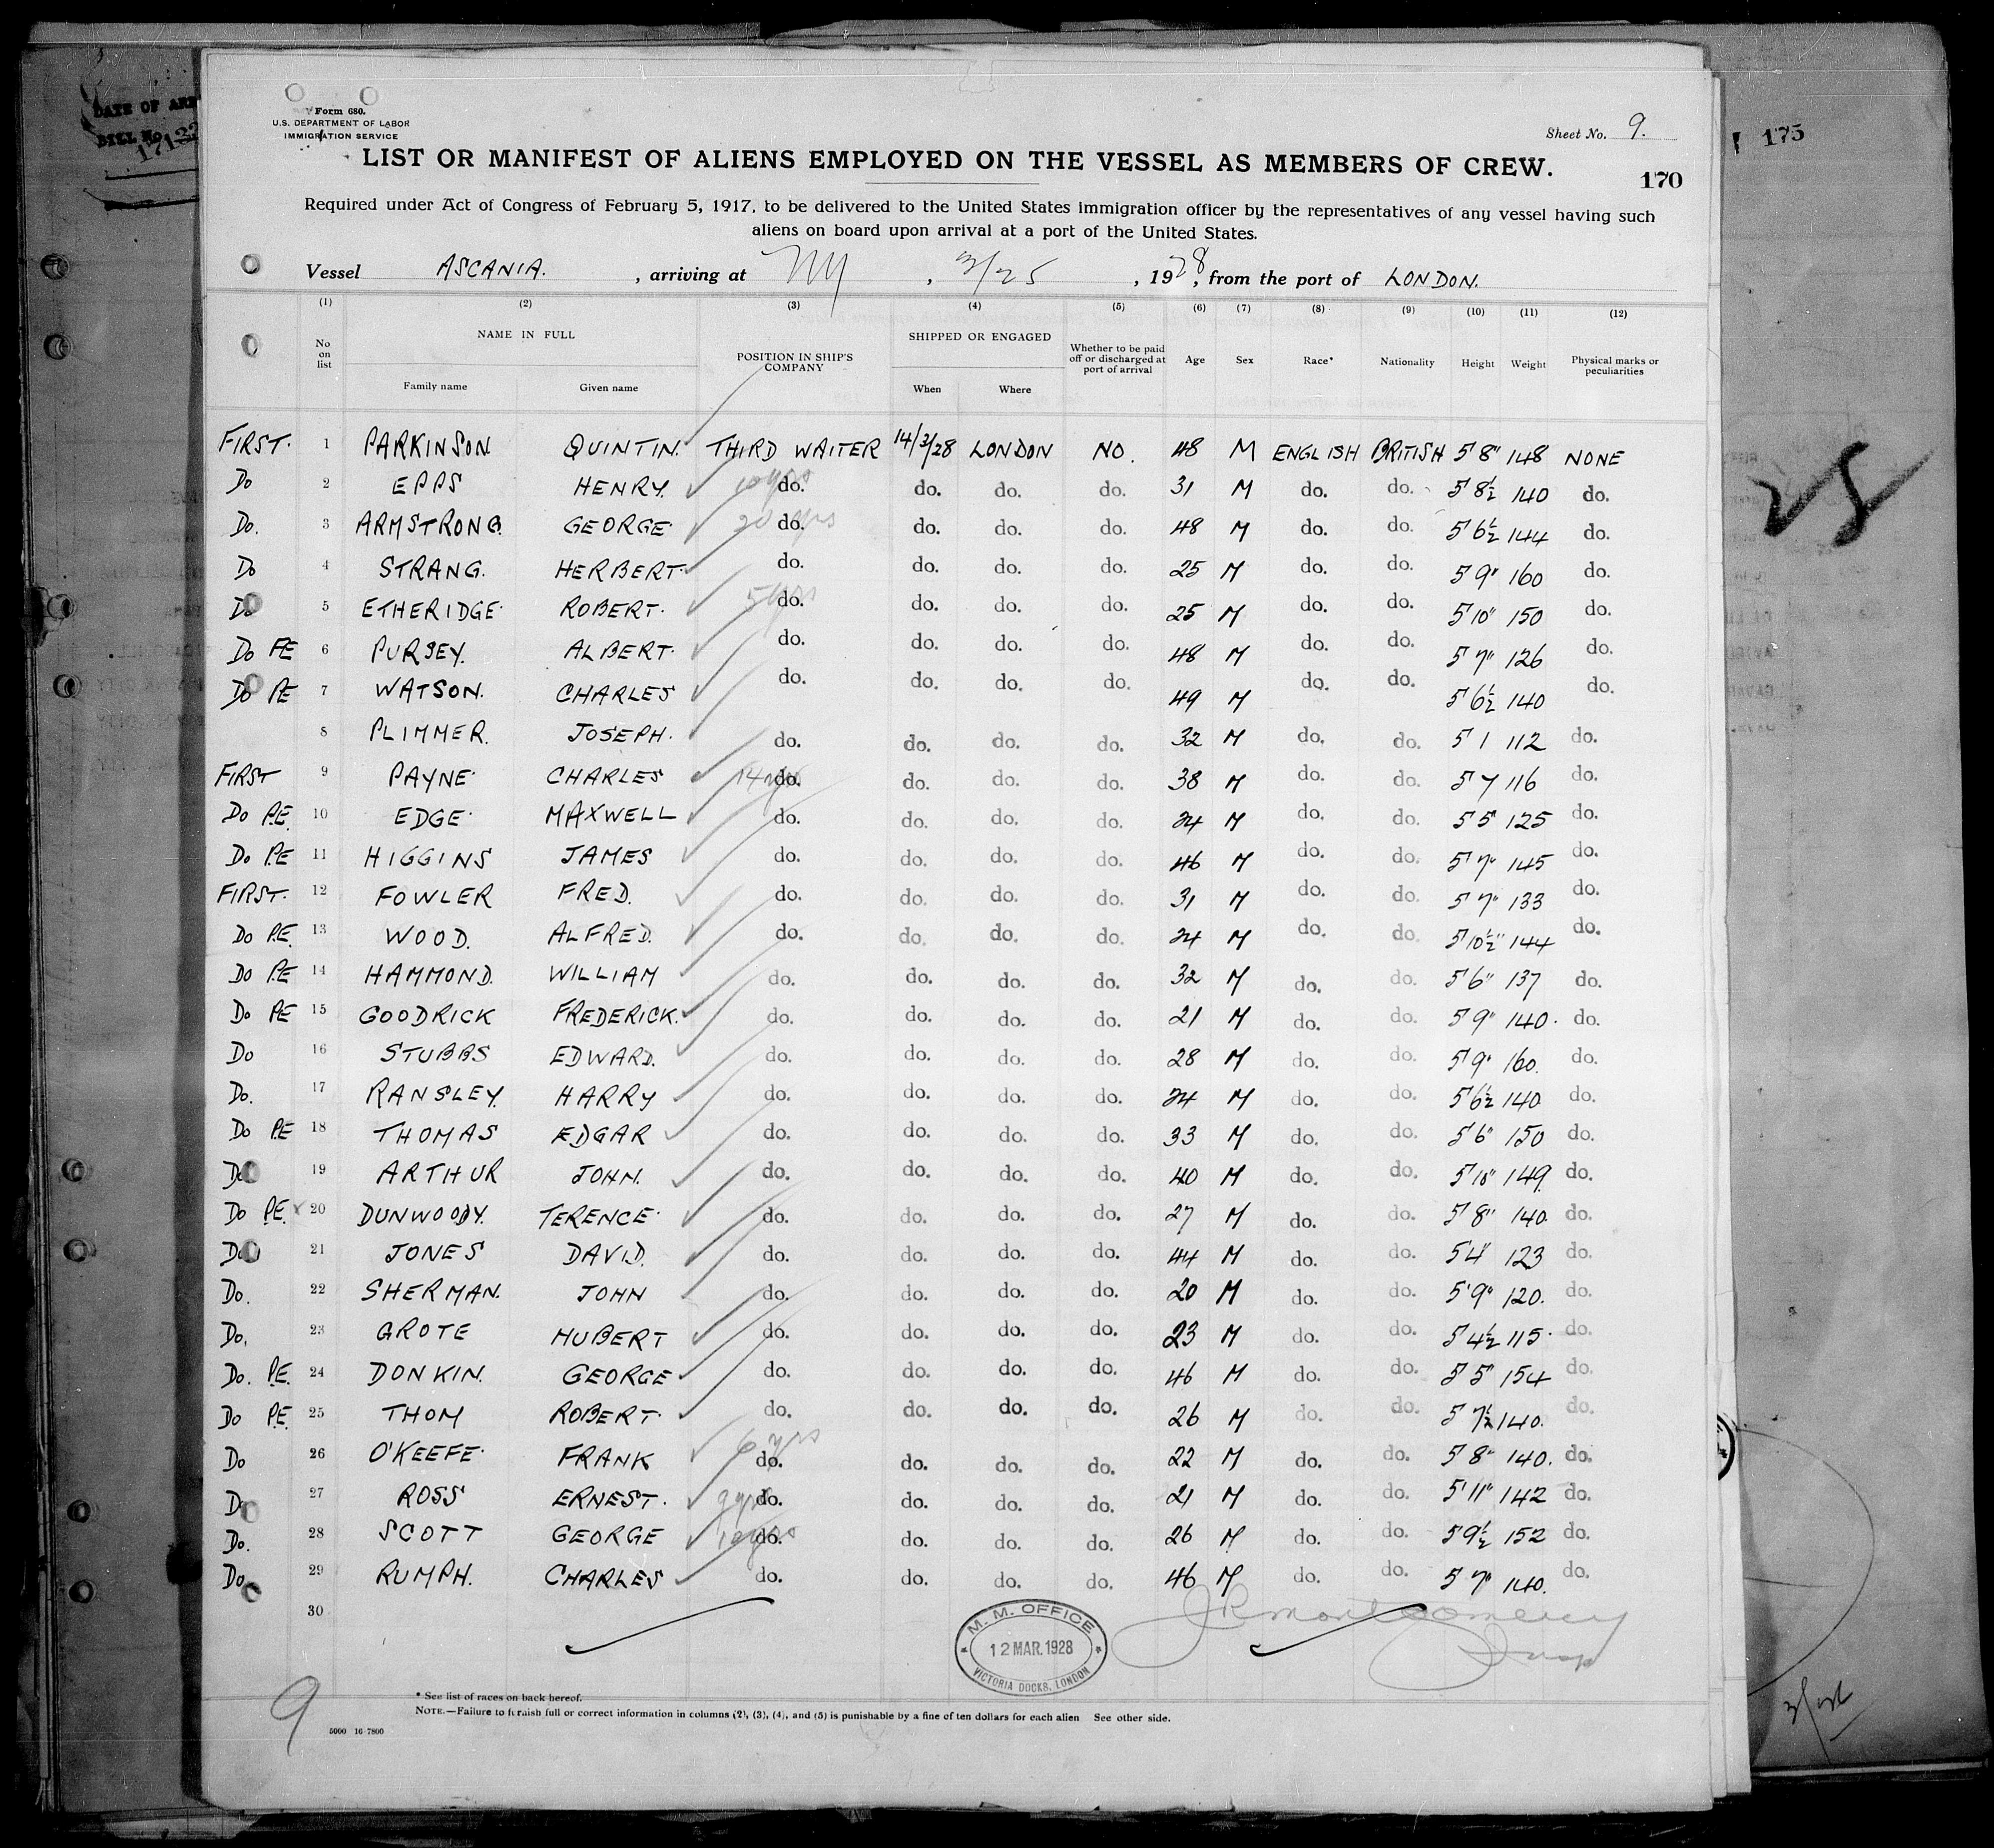 DATE OF ARR
BILL No.
171-22
Form 680.
U.S. DEPARTMENT OF LABOR
IMMIGRATION SERVICE
Sheet No. 9.
175
LIST OR MANIFEST OF ALIENS EMPLOYED ON THE VESSEL AS MEMBERS OF CREW.
170
Required under Act of Congress of February 5, 1917, to be delivered to the United States immigration officer by the representatives of any vessel having such
aliens on board upon arrival at a port of the United States.
Vessel ASCANIA. , arriving at NY , 3/25 , 1928, from the port of LONDON.
(1) (2) (3) (4) (5) (6) (7) (8) (9) (10) (11) (12)
No on list NAME IN FULL Family name Given name POSITION IN SHIP'S COMPANY SHIPPED OR ENGAGED When Where Whether to be paid off or discharged at port of arrival Age Sex Race* Nationality Height Weight Physical marks or peculiarities
FIRST. 1 PARKINSON QUINTIN. THIRD WAITER 14/3/28 LONDON NO. 48 M ENGLISH BRITISH 5'8" 148 NONE
Do 2 EPPS HENRY. 10 yrs do. do. do. do. 31 M do. do. 5 8½ 140 do.
Do. 3 ARMSTRONG. GEORGE 20 yrs do. do. do. do. 48 M do. do. 5 6½ 144 do.
Do 4 STRANG. HERBERT. do. do. do. do. 25 M do. do. 5 9" 160 do.
Do 5 ETHERIDGE ROBERT. 5 yrs do. do. do. do. 25 M do. do. 5'10" 150 do.
Do PE 6 PURSEY. ALBERT. do. do. do. do. 48 M do. do. 5 7" 126 do.
Do PE 7 WATSON. CHARLES do. do. do. do. 49 M do. do. 5 6½ 140 do.
8 PLIMMER. JOSEPH. do. do. do. do. 32 M do. do. 5 1 112 do.
FIRST 9 PAYNE CHARLES 14 yrs do. do. do. do. 38 M do. do. 5 7 116 do.
Do P.E. 10 EDGE MAXWELL do. do. do. do. 24 M do. do. 5 5" 125 do.
Do P.E 11 HIGGINS JAMES do. do. do. do. 46 M do. do. 5 7" 145 do.
FIRST. 12 FOWLER FRED. do. do. do. do. 31 M do. do. 5 7" 133 do.
Do P.E. 13 WOOD. ALFRED. do. do. do. do. 24 M do. do. 5'10½" 144 do.
Do P.E 14 HAMMOND. WILLIAM do. do. do. do. 32 M do. do. 5'6" 137 do.
Do PE 15 GOODRICK FREDERICK. do. do. do. do. 21 M do. do. 5'9" 140. do.
Do 16 STUBBS EDWARD. do. do. do. do. 28 M do. do. 5'9" 160. do.
Do. 17 RANSLEY. HARRY do. do. do. do. 24 M do. do. 5'6½ 140 do.
Do P.E 18 THOMAS EDGAR do. do. do. do. 33 M do. do. 5'6" 150 do.
Do 19 ARTHUR JOHN. do. do. do. do. 40 M do. do. 5'10" 149. do.
Do P.E. 20 DUNWOODY. TERENCE do. do. do. do. 27 M do. do. 5'8" 140. do.
Do 21 JONES DAVID. do. do. do. do. 44 M do. do. 5'4" 123 do.
Do. 22 SHERMAN. JOHN do. do. do. do. 20 M do. do. 5'9" 120. do.
Do. 23 GROTE HUBERT do. do. do. do. 23 M do. do. 5 4½ 115. do.
Do. P.E. 24 DONKIN. GEORGE do. do. do. do. 46 M do. do. 5 5" 154 do.
Do P.E. 25 THOM ROBERT. do. do. do. do. 26 M do. do. 5 7½ 140. do.
Do 26 O'KEEFE FRANK 6 yrs do. do. do. do. 22 M do. do. 5 8" 140. do.
Do 27 ROSS ERNEST. 9 yrs do. do. do. do. 21 M do. do. 5'11" 142 do.
Do. 28 SCOTT GEORGE 10 yrs do. do. do. do. 26 M do. do. 5 9½ 152 do.
Do. 29 RUMPH. CHARLES do. do. do. do. 46 M do. do. 5 7" 140. do.
30
M. M. OFFICE
12 MAR. 1928
VICTORIA DOCKS, LONDON
JR Montgomery
Insp
9
* See list of races on back hereof.
NOTE.—Failure to furnish full or correct information in columns (2), (3), (4), and (5) is punishable by a fine of ten dollars for each alien See other side.
5000 16-7800